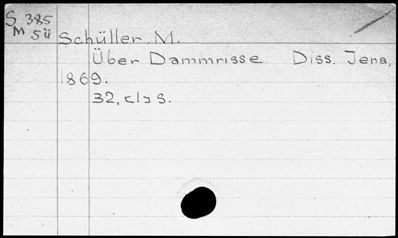 S 385
M 5ü
Schüller, M.
Über Dammrisse. Diss. Jena,
1869.
32, S.